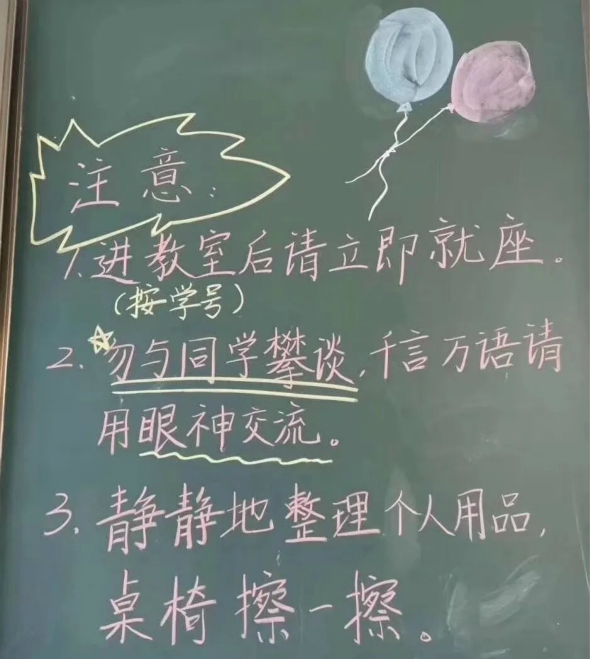 注意：
1.进教室后请立即就座。
（按学号）
2.勿与同学攀谈,千言万语请
用眼神交流。
3.静静地整理个人用品,
桌椅擦一擦。